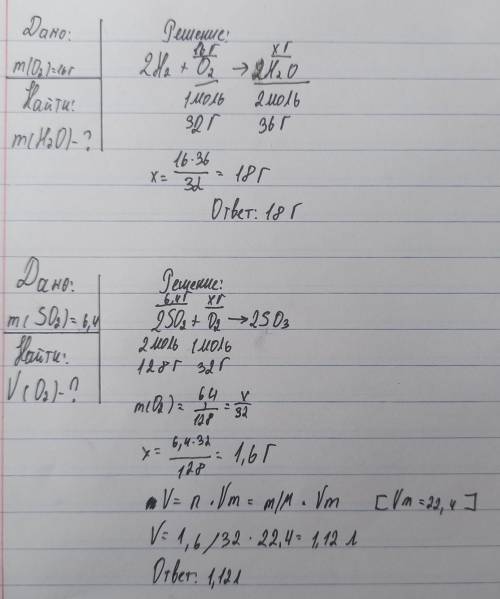 Дано:
m(O₂)=16г
Найти:
m(H₂O)-?
Решение:
16г xг
2H₂ + O₂ → 2H₂O
1моль 2моль
32г 36г
x = 16·36/32 = 18г
Ответ: 18г
Дано:
m(SO₂)=6,4
Найти:
V(O₂)-?
Решение:
6,4г xг
2SO₂ + O₂ → 2SO₃
2моль 1моль
128г 32г
m(O₂) = 6,4/128 = x/32
x = 6,4·32/128 = 1,6г
V = n · Vm = m/M · Vm [Vm = 22,4]
V = 1,6/32 · 22,4 = 1,12 л
Ответ: 1,12л